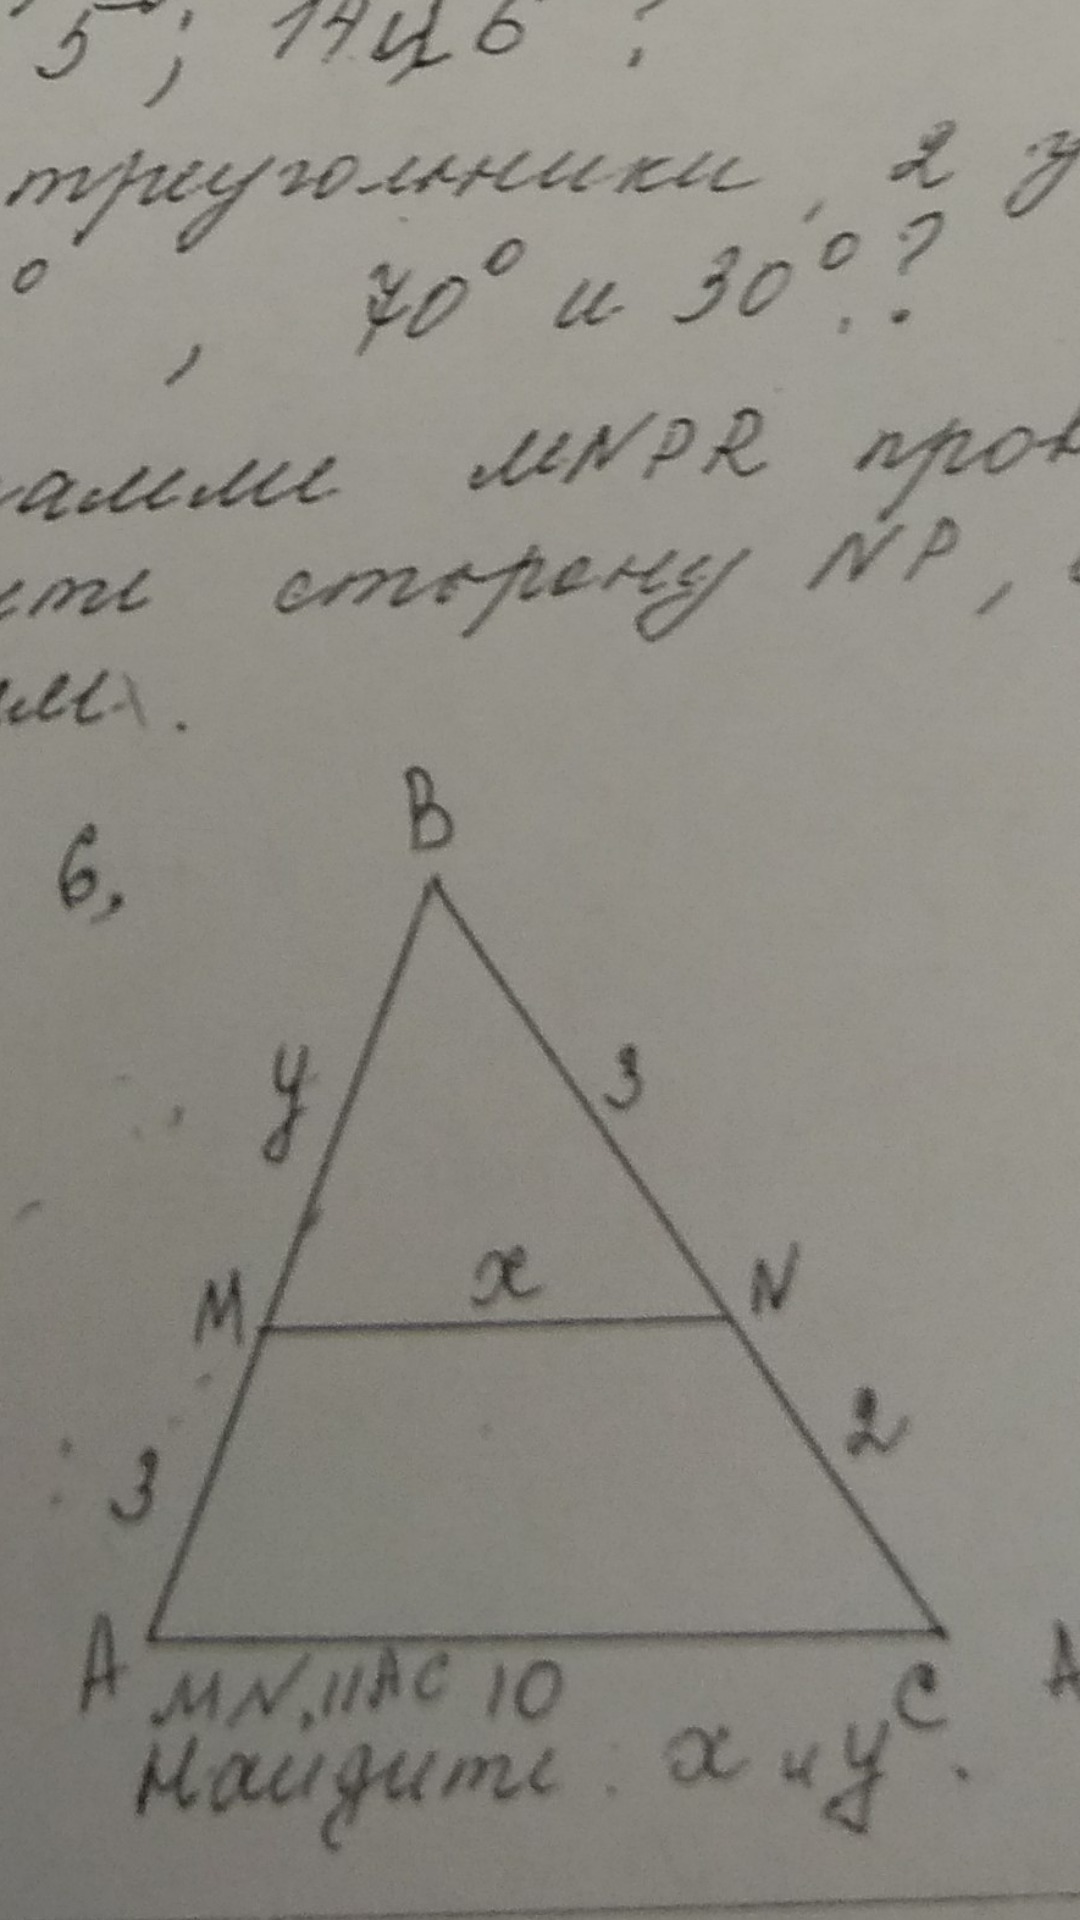 5 ; 14 и 6 ?
треугольники, 2 у
° , 70° и 30°.?
MNPR пров
сторону NP,
6.
B
y 3
M x N
3 2
A C A
MN || AC 10
Найдите: x и y.